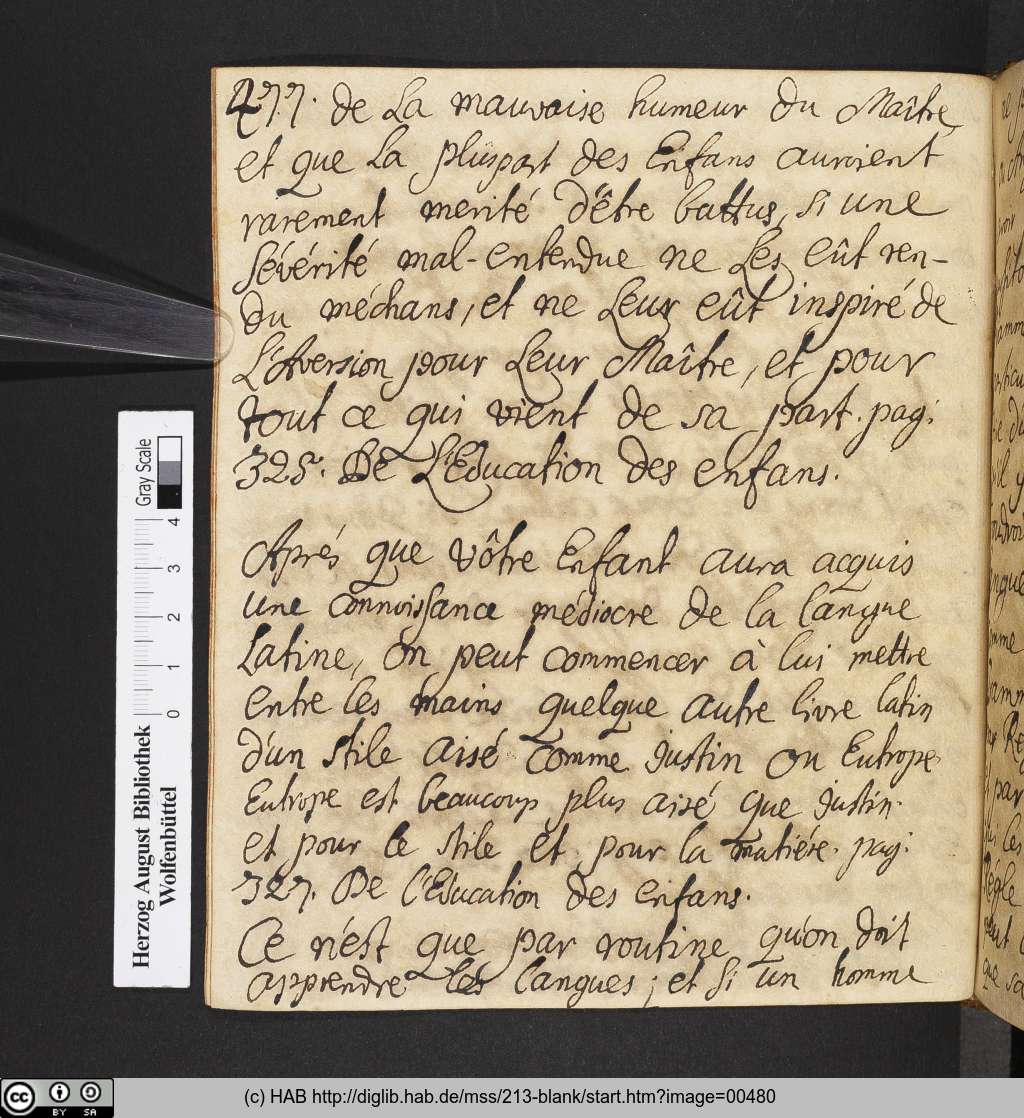 477. de La mauvaise humeur du Maître,
et que La pluspart des Enfans auroient
rarement merité d'être battus, si une
Sévérité mal-entendue ne Les eût ren-
du méchans, et ne Leur eût inspiré de
L'Aversion pour Leur Maître, et pour
tout ce qui vient de sa part. pag.
325. De L'Education des enfans.
Aprés que vôtre Enfant aura acquis
une connoissance médiocre de la langue
Latine, on peut commencer à lui mettre
entre les mains quelque autre livre latin
d'un stile aisé comme Justin ou Eutrope
Eutrope est beaucoup plus aisé que Justin.
et pour le stile et pour la matiére. pag.
327. De l'Education des enfans.
Ce n'est que par routine qu'on doit
apprendre les langues; et si un homme
Herzog August Bibliothek
Wolfenbüttel
0 1 2 3 4
Gray Scale
cc BY SA
(c) HAB http://diglib.hab.de/mss/213-blank/start.htm?image=00480